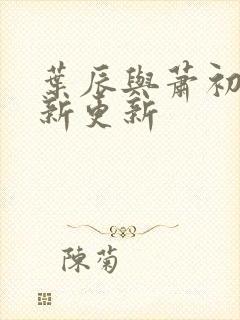 葉辰與蕭初
新更新
陳菊